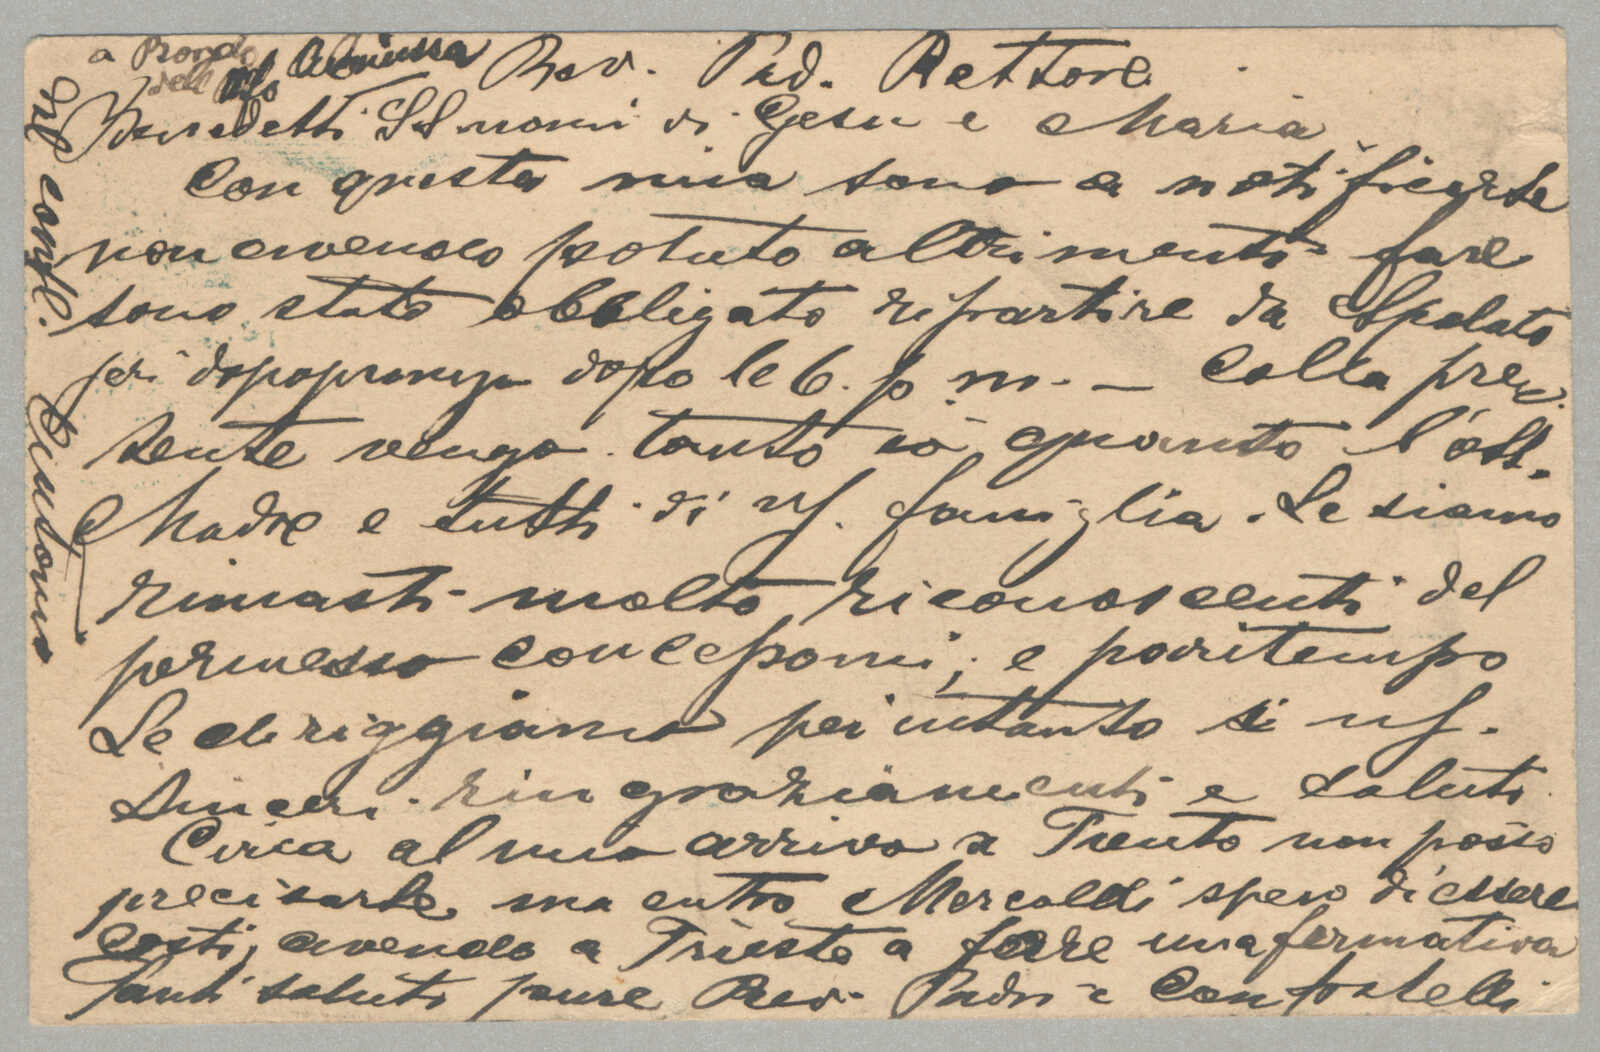 a Bordo
dell
Rev. Pad. Rettore.
Benedetti SS nomi di Gesu e Maria
Con questa mia sono a notificarle
non avendo potuto altrimenti fare
sono stato obbligato ripartire da Spalato
jeri dopopranzo dopo le 6. p m. — Colla pre-
sente vengo tanto io quanto l'ott.
Madre e tutti di nf. famiglia. Le siamo
rimasti molto riconoscenti del
permesso concessomi; e pari tempo
Le diriggiamo per intanto i nf.
sinceri ringraziamenti e saluti.
Circa al mio arrivo a Trento non posso
precisarle ma entro Mercoldi spero di essere
costi, avendo a Trieste a fare una fermativa
Tanti saluti pure Rev. Padri e Confratelli
Antonio